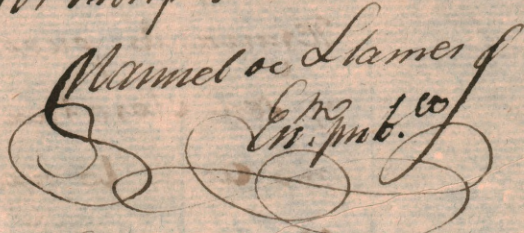 Manuel de Llames
Esn. pub.co